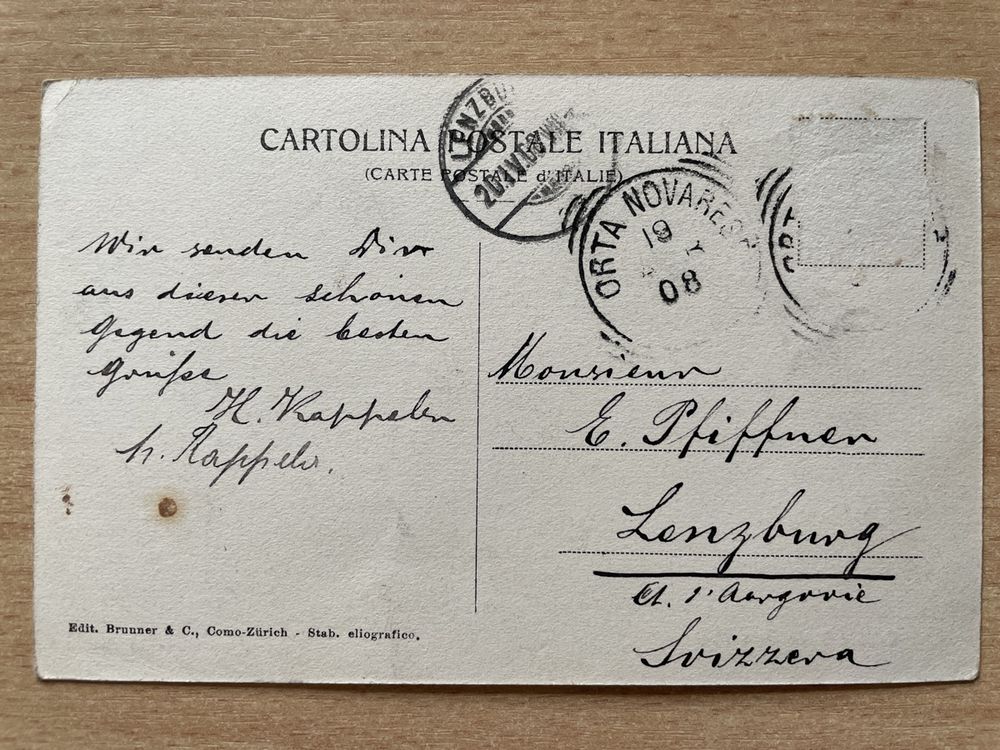 CARTOLINA POSTALE ITALIANA
(CARTE POSTALE d'ITALIE)
LENZBU
20.IV.08
ORTA NOVARESE
19
08
ORT
Wir senden Dir
aus dieser schönen
Gegend die besten
Grüße
H. Kappeler
h. Kappeler.
Monsieur
E. Pfiffner
Lenzburg
Ct. d'Aargovie
Svizzera
Edit. Brunner & C., Como-Zürich - Stab. eliografico.